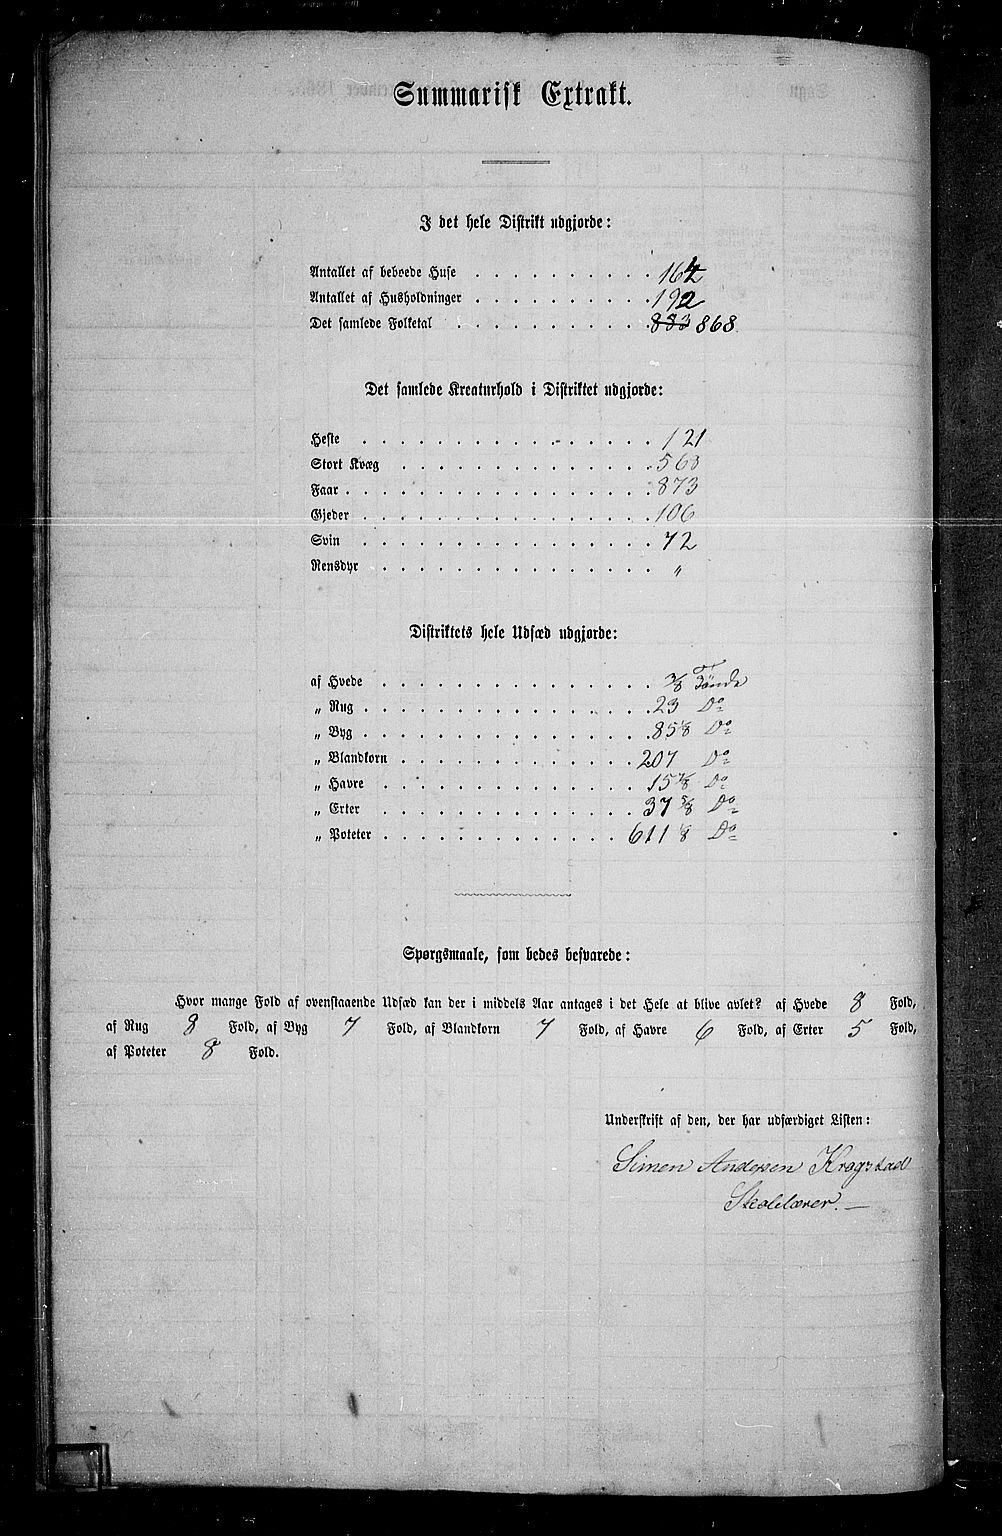 Summarisk Extrakt.
I det hele Distrikt udgjorde:
Antallet af beboede Huse . . . . . . . . . . 164
Antallet af Husholdninger . . . . . . . . . . 192
Det samlede Folketal . . . . . . . . . . . 883 868
Det samlede Kreaturhold i Distriktet udgjorde:
Heste . . . . . . . . . . . . . . . . 121
Stort Kvæg . . . . . . . . . . . . . . 563
Faar . . . . . . . . . . . . . . . . . 873
Gjeder . . . . . . . . . . . . . . . . 106
Sviin . . . . . . . . . . . . . . . . 72
Rensdyr . . . . . . . . . . . . . . . „
Distriktets hele Udsæd udgjorde:
af Hvede . . . . . . . . . . . . . . . 7/8 Tønde
„ Rug . . . . . . . . . . . . . . . . 23 Do
„ Byg . . . . . . . . . . . . . . . . 85 1/8 Do
„ Blandkorn . . . . . . . . . . . . . 207 Do
„ Havre . . . . . . . . . . . . . . 15 7/8 Do
„ Erter . . . . . . . . . . . . . . 37 5/8 Do
„ Poteter . . . . . . . . . . . . . 611 1/8 Do
Spørgsmaale, som bedes besvarede:
Hvor mange Fold af ovenstaaende Udsæd kan der i middels Aar antages i det Hele at blive avlet? af Hvede 8 Fold,
af Rug 8 Fold, af Byg 7 Fold, af Blandkorn 7 Fold, af Havre 6 Fold, af Erter 5 Fold,
af Poteter 8 Fold.
Underskrift af den, der har udfærdiget Listen:
Simen Andersen Kragstad
Skolelærer.